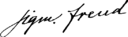 sigm. freud